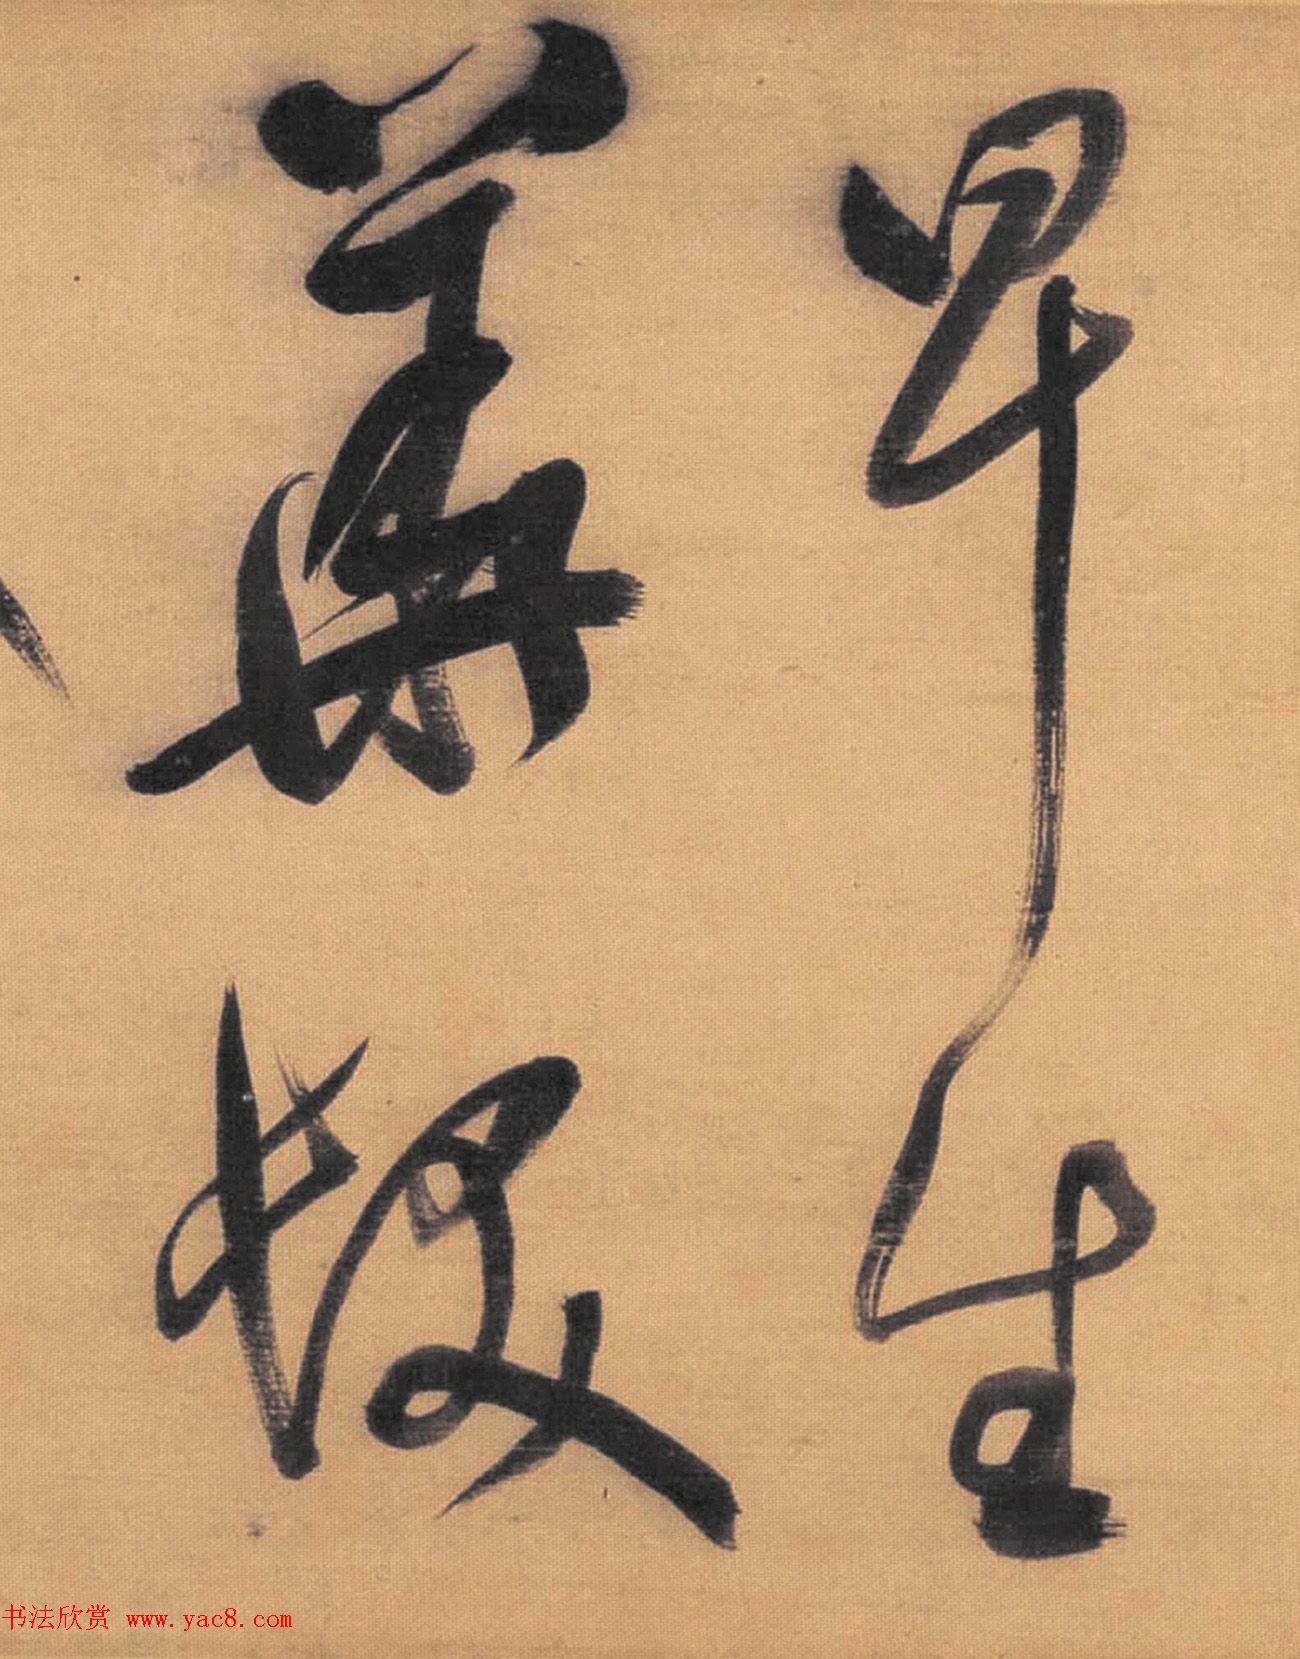 早生
華髮
书法欣赏 www.yac8.com